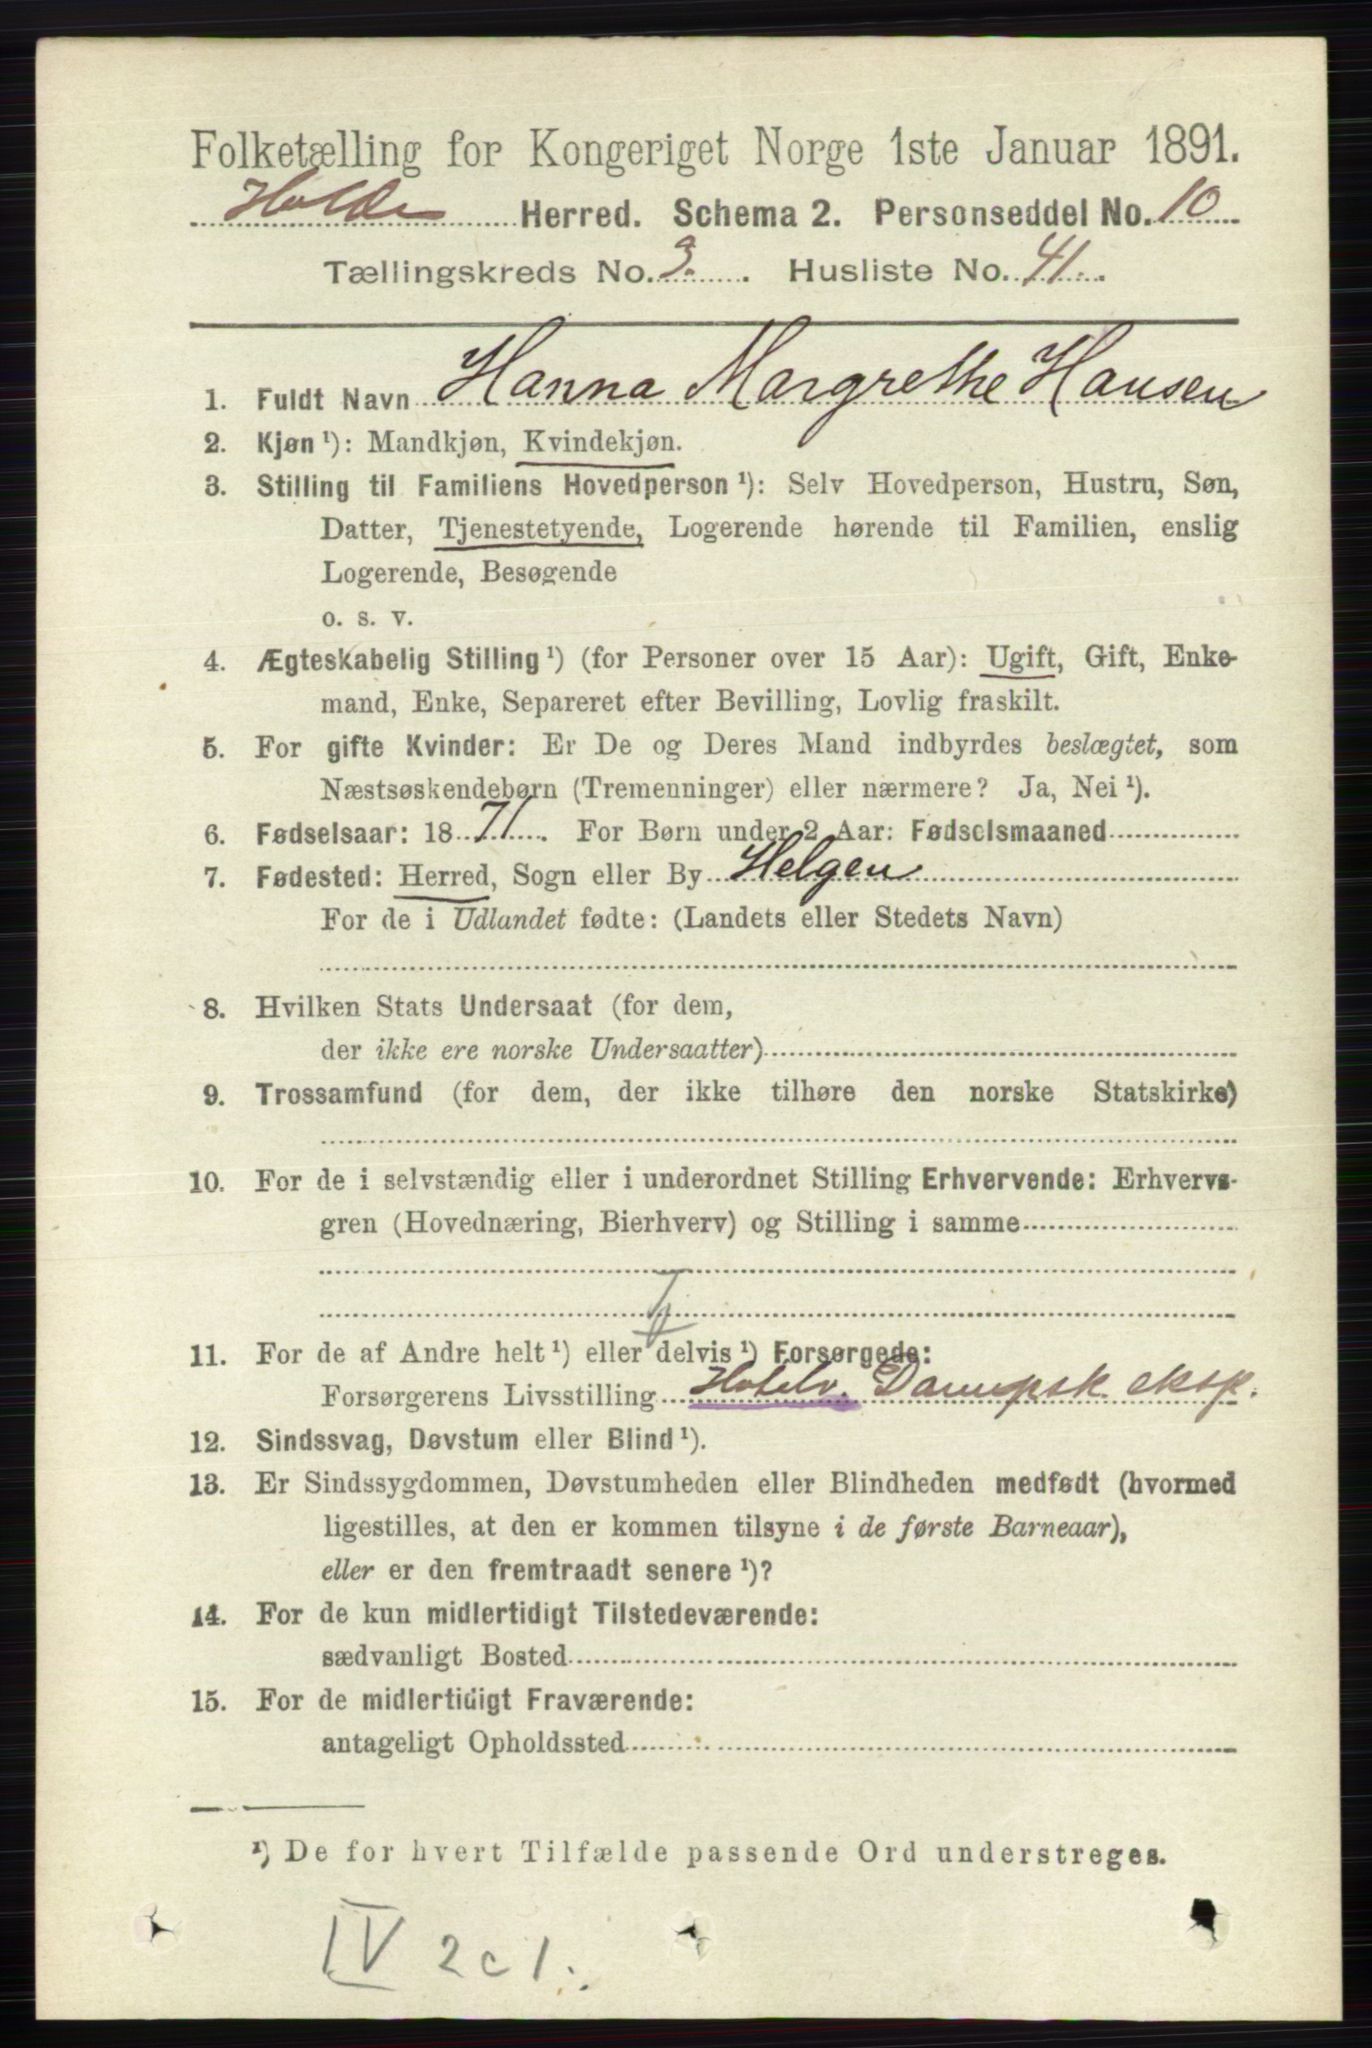 Folketælling for Kongeriget Norge 1ste Januar 1891.
Holden Herred. Schema 2. Personseddel No. 10
Tællingskreds No. 3. Husliste No. 41.
1. Fuldt Navn Hanna Margrethe Hansen
2. Kjøn ¹): Mandkjøn, Kvindekjøn.
3. Stilling til Familiens Hovedperson ¹): Selv Hovedperson, Hustru, Søn,
Datter, Tjenestetyende, Logerende hørende til Familien, enslig
Logerende, Besøgende
o. s. v.
4. Ægteskabelig Stilling ¹) (for Personer over 15 Aar): Ugift, Gift, Enke-
mand, Enke, Separeret efter Bevilling, Lovlig fraskilt.
5. For gifte Kvinder: Er De og Deres Mand indbyrdes beslægtet, som
Næstsøskendebørn (Tremenninger) eller nærmere? Ja, Nei ¹).
6. Fødselsaar: 1871. For Børn under 2 Aar: Fødselsmaaned
7. Fødested: Herred, Sogn eller By Helgen
For de i Udlandet fødte: (Landets eller Stedets Navn)
8. Hvilken Stats Undersaat (for dem,
der ikke ere norske Undersaatter)
9. Trossamfund (for dem, der ikke tilhøre den norske Statskirke)
10. For de i selvstændig eller i underordnet Stilling Erhvervende: Erhvervs-
gren (Hovednæring, Bierhverv) og Stilling i samme
11. For de af Andre helt ¹) eller delvis ¹) Forsørgede:
Forsørgerens Livsstilling Hotelv. Dampsk. eksp.
12. Sindssvag, Døvstum eller Blind ¹).
13. Er Sindssygdommen, Døvstumheden eller Blindheden medfødt (hvormed
ligestilles, at den er kommen tilsyne i de første Barneaar),
eller er den fremtraadt senere ¹)?
14. For de kun midlertidigt Tilstedeværende:
sædvanligt Bosted
15. For de midlertidigt Fraværende:
antageligt Opholdssted
¹) De for hvert Tilfælde passende Ord understreges.
IV 2c1.